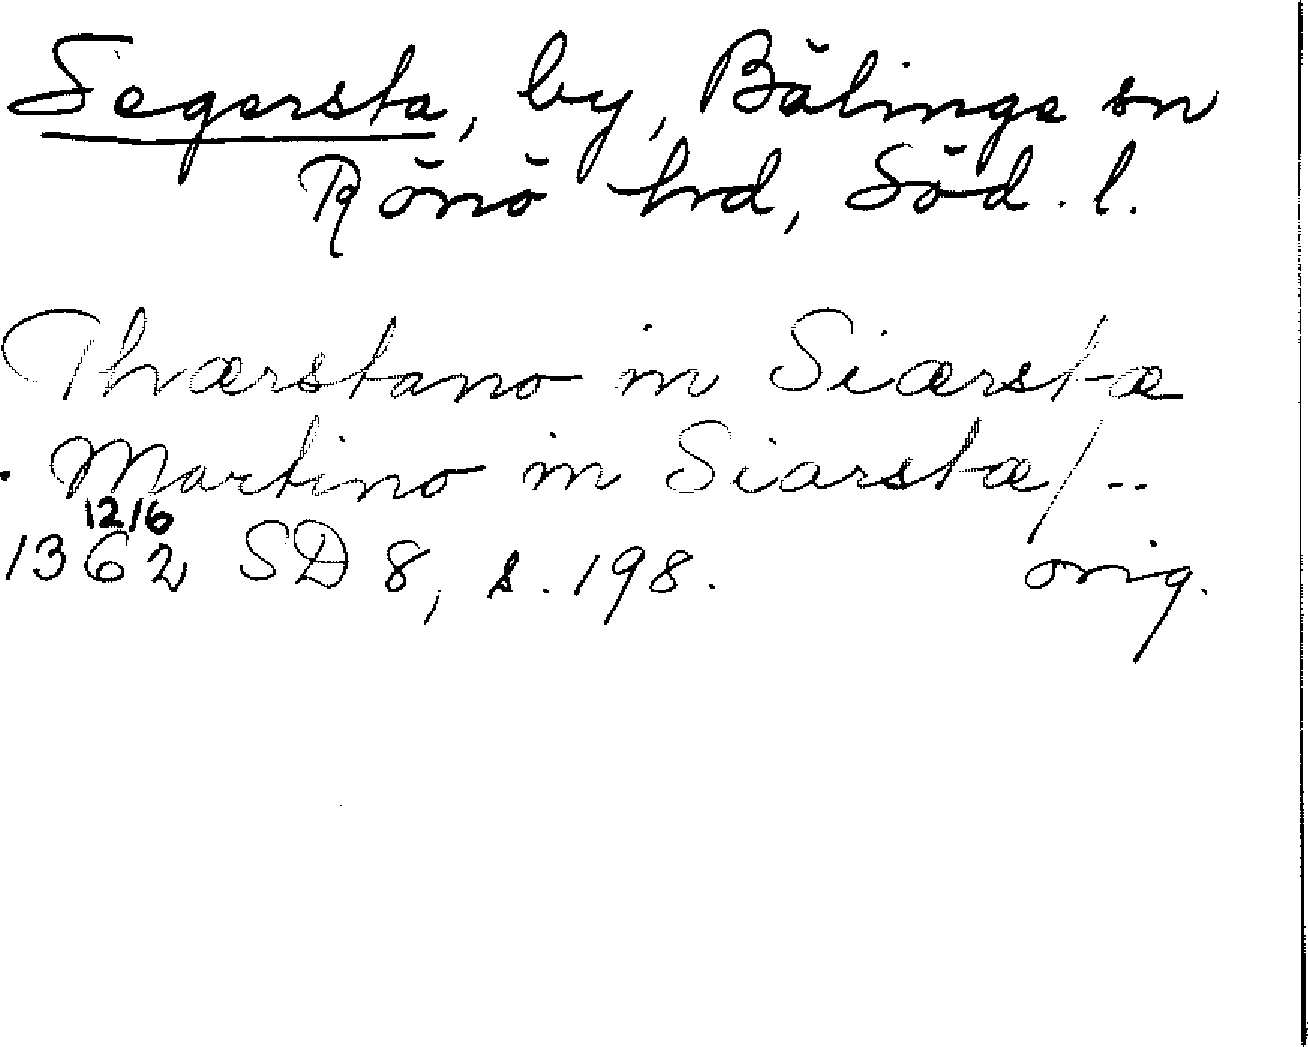 Segersta, by, Bälinge sn
Rönö hrd, Söd. l.
Thrærstano in Siærstæ
. Martino in Siarstæ/--
12/6
1362 SD 8, s. 198. orig.